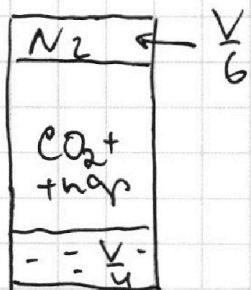 N2
V/6
CO2+
+нар
V/4